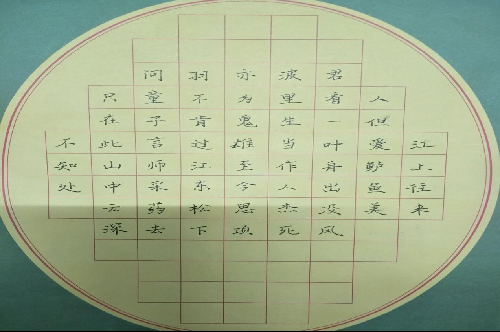 江上往来
人但爱鲈鱼美
君看一叶舟出没风
波里生当作人杰死
亦为鬼雄至今思项
羽不肯过江东松下
问童子言师采药去
只在此山中云深
不知处